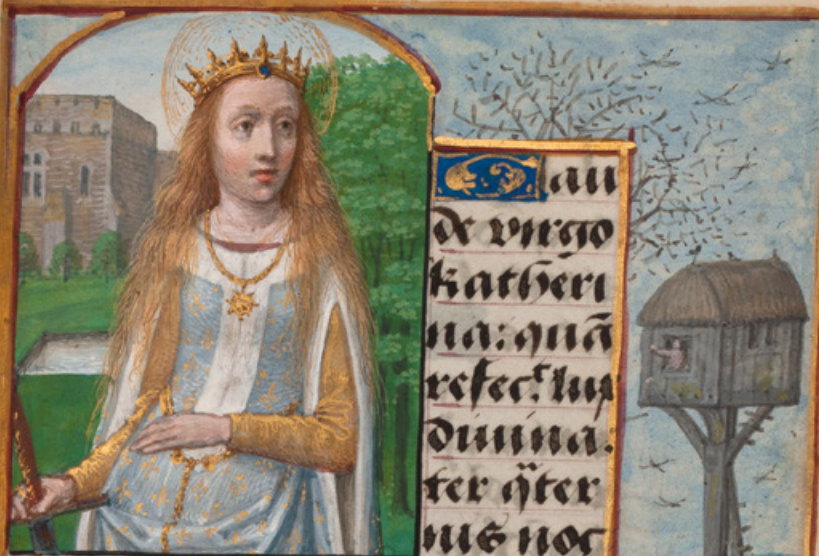 Gau
de virgo
katheri
na: quã
refec.t lux
diuina.
ter q̃ter
nis noc